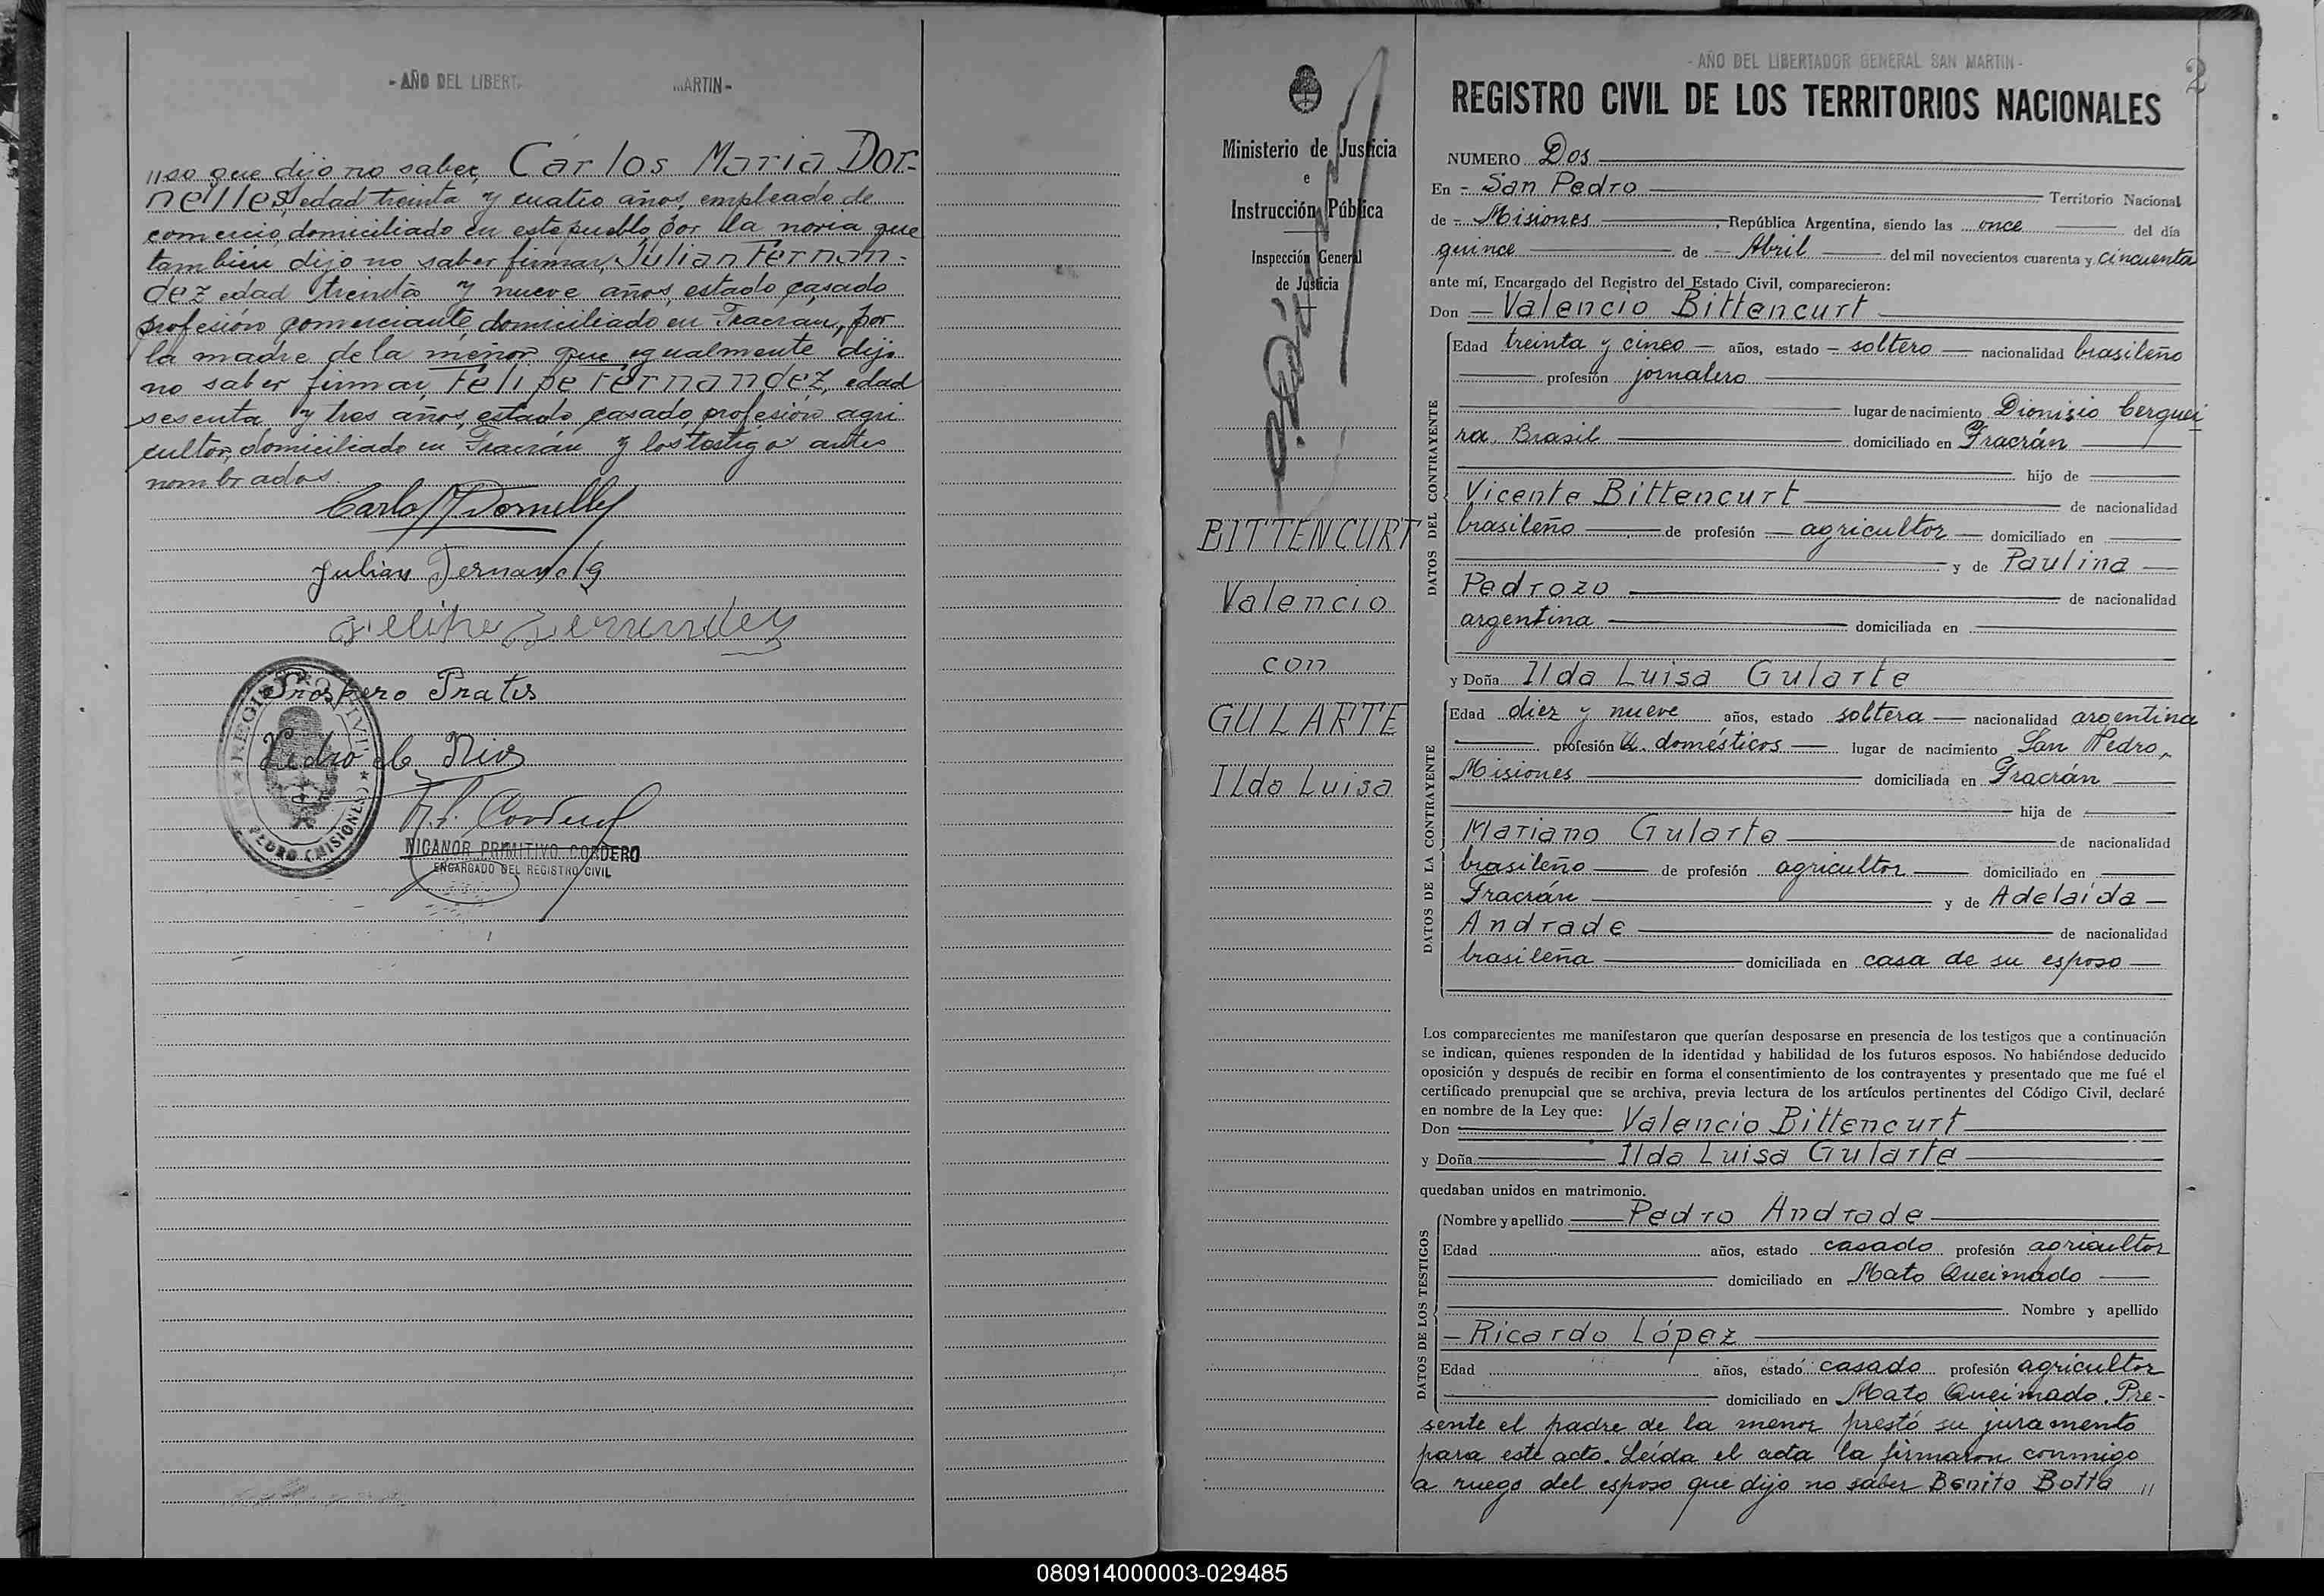 - AÑO DEL LIBERT
MARTIN -
"so que dijo no saber, Cárlos Maria Dor-
nelles, edad treinta y cuatro años, empleado de
comercio, domiciliado en este pueblo, por la novia que
tambien dijo no saber firmar, Julian Fernan-
dez edad treinta y nueve años, estado casado
profesión comerciante, domiciliado en Fracrán, por
la madre de la menor que igualmente dijo
no saber firmar, Felipe Fernandez, edad
sesenta y tres años, estado casado, profesión agri
cultor, domiciliado en Fracrán y los testigos antes
nombrados.
Carlos M Dornelles
Julian Fernandez
Felipe Fernandez
Prospero Prates
Pedro de Rios
REGISTRO CIVIL
PEDRO (MISIONES)
N.P. Cordero
NICANOR PRIMITIVO CORDERO
ENCARGADO DEL REGISTRO CIVIL
Ministerio de Justicia
e
Instrucción Pública
Inspección General
de Justicia
BITTENCURT
Valencio
con
GULARTE
Ilda Luisa
- AÑO DEL LIBERTADOR GENERAL SAN MARTIN -
2
REGISTRO CIVIL DE LOS TERRITORIOS NACIONALES
NUMERO Dos
En - San Pedro Territorio Nacional
de - Misiones, República Argentina, siendo las once del día
quince de - Abril del mil novecientos cuarenta y cincuenta
ante mí, Encargado del Registro del Estado Civil, comparecieron:
Don - Valencio Bittencurt
DATOS DEL CONTRAYENTE
Edad treinta y cinco - años, estado - soltero - nacionalidad brasileño
profesión jornalero
lugar de nacimiento Dionisio Cerquei
ra, Brasil domiciliado en Fracrán
hijo de
Vicente Bittencurt de nacionalidad
brasileño de profesión - agricultor - domiciliado en
y de Paulina
Pedrozo de nacionalidad
argentina domiciliada en
y Doña Ilda Luisa Gularte
DATOS DE LA CONTRAYENTE
Edad diez y nueve años, estado soltera - nacionalidad argentina
profesión Q. domésticos - lugar de nacimiento San Pedro,
Misiones domiciliada en Fracrán
hija de
Mariano Gularte de nacionalidad
brasileño de profesión agricultor domiciliado en
Fracrán y de Adelaida -
Andrade de nacionalidad
brasileña domiciliada en casa de su esposo -
Los comparecientes me manifestaron que querían desposarse en presencia de los testigos que a continuación
se indican, quienes responden de la identidad y habilidad de los futuros esposos. No habiéndose deducido
oposición y después de recibir en forma el consentimiento de los contrayentes y presentado que me fué el
certificado prenupcial que se archiva, previa lectura de los artículos pertinentes del Código Civil, declaré
en nombre de la Ley que:
Don Valencio Bittencurt
y Doña Ilda Luisa Gularte
quedaban unidos en matrimonio.
DATOS DE LOS TESTIGOS
Nombre y apellido Pedro Andrade
Edad años, estado casado profesión agricultor
domiciliado en Mato Queimado
Nombre y apellido
- Ricardo López
Edad años, estado casado profesión agricultor
domiciliado en Mato Queimado. Pre-
sente el padre de la menor prestó su juramento
para este acto. Leída el acta la firmaron conmigo
a ruego del esposo que dijo no saber Benito Botta "
080914000003-029485